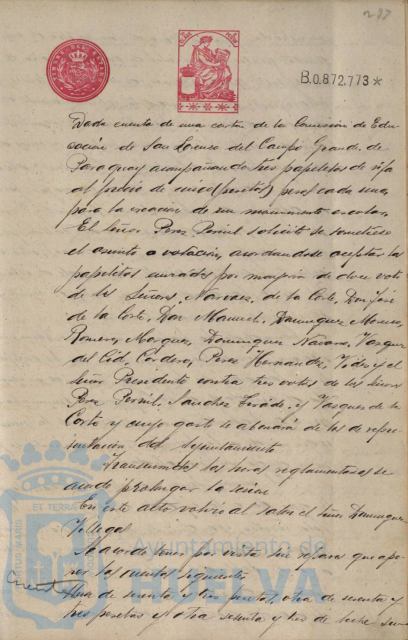 297
B.0.872.773*
Dada cuenta de una carta de la Comisión de Edu-
cación de San Lorenzo del Campo Grande, de
Paraguay acompañando tres papeletas de rifa
al precio de cinco (pesetas) pesos cada una,
para la creación de un monumento escolar,
El señor Perez Pernil solicitó se sometiese
el asunto a votación, acordandose aceptar las
papeletas enviadas por mayoría de doce votos
de los Señores Narvaez, de la Corte, Don José
de la Corte, Don Manuel, Dominguez Moreno,
Romero, Marquez, Dominguez Navarro, Vazquez
del Cid, Cordero, Perez Hernandez, Vides y el
Señor Presidente contra tres votos de los Señores
Perez Pernil, Sanchez y Vazquez de la
Corte y cuyo gasto se abonará de los de repre-
sentación del Ayuntamiento
Transcurridas las horas reglamentarias se
acordó prolongar la sesión
En este acto volvió al salon el señor Dominguez
Villegas
Se acordó por visto sin reparo que opo-
ner las cuentas siguientes
Cuentas
Una de ciento y tres pesetas, otra de sesenta y
tres pesetas y otra sesenta y tres de
Ayuntamiento de
HUELVA